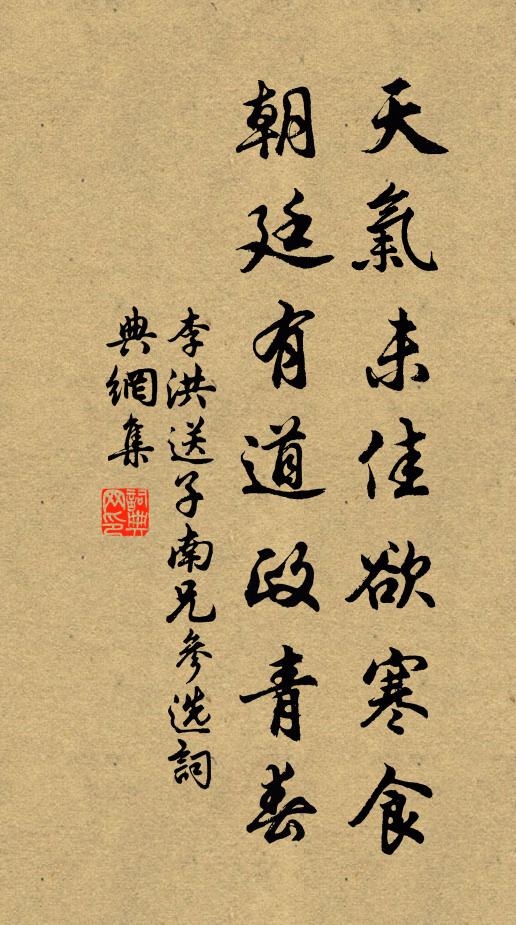 天氣未佳欲寒食
朝廷有道政青春
李洪送子南兄參选詞
典網集
詞典网印